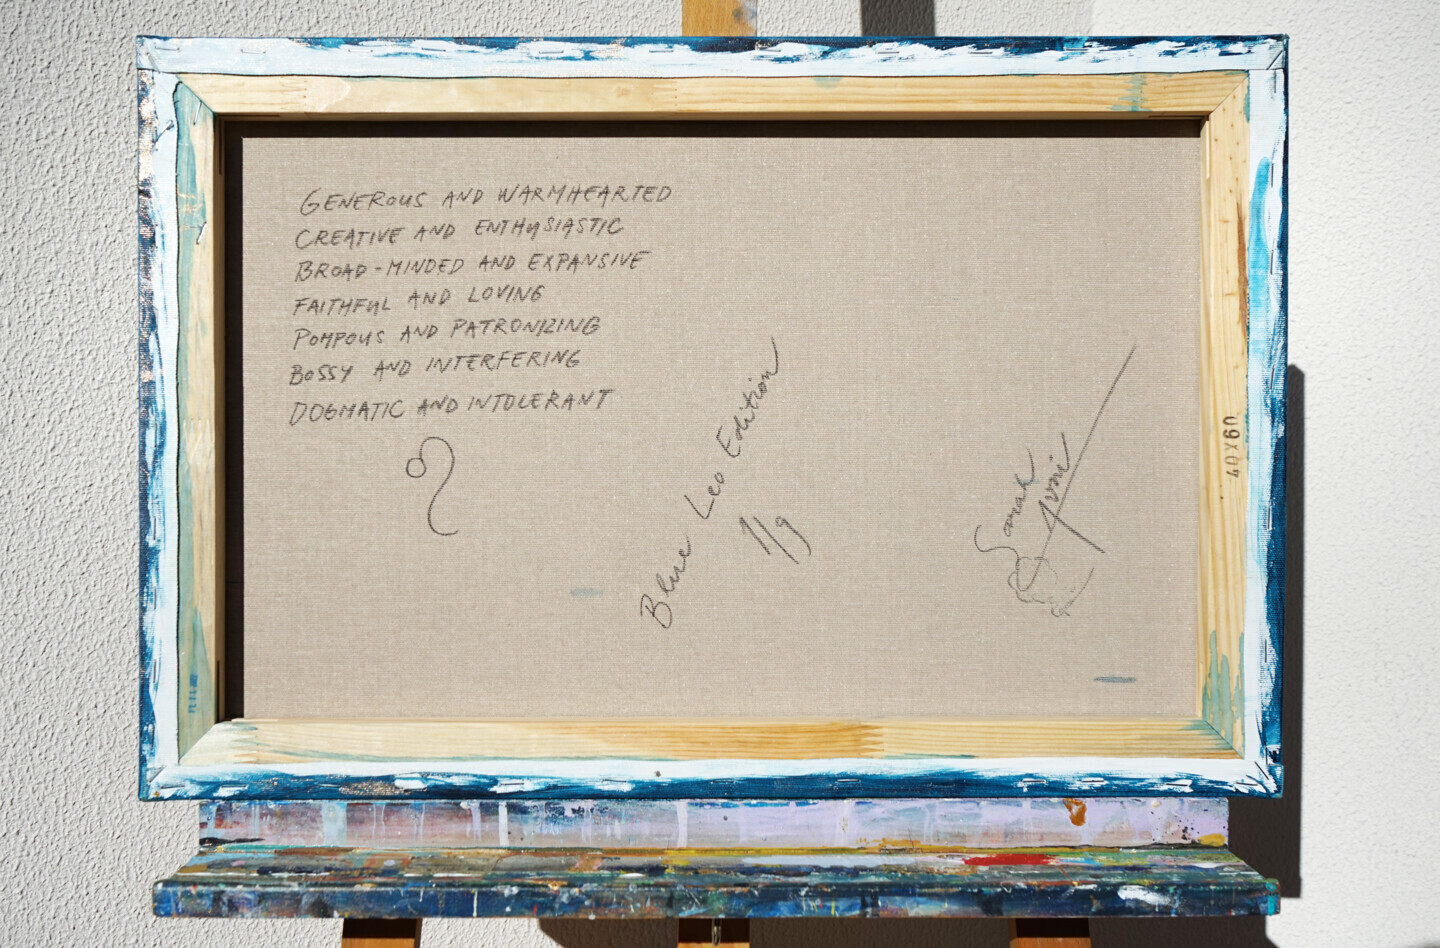 GENEROUS AND WARMHEARTED
CREATIVE AND ENTHUSIASTIC
BROAD-MINDED AND EXPANSIVE
FAITHFUL AND LOVING
POMPOUS AND PATRONIZING
BOSSY AND INTERFERING
DOGMATIC AND INTOLERANT
Blue Leo Edition
1/9
Sarah
40X60